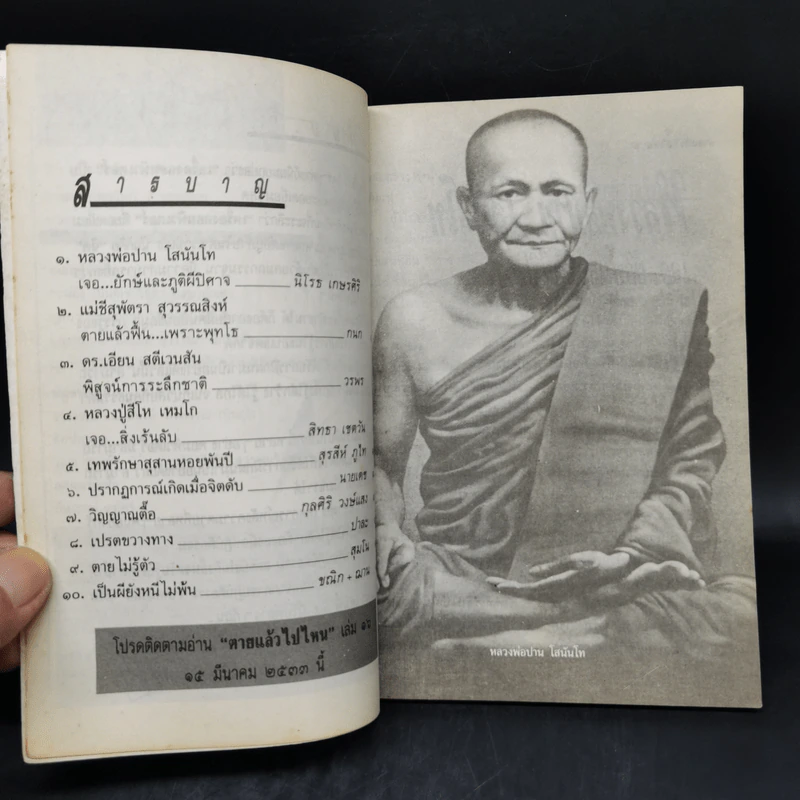 สารบาญ
๑. หลวงพ่อปาน โสนันโท
เจอ...ยักษ์และภูติผีปีศาจ นิโรธ เกษรศิริ
๒. แม่ชีสุพัตรา สุวรรณสิงห์
ตายแล้วฟื้น...เพราะพุทโธ กนก
๓. ดร.เอียน สตีเวนสัน
พิสูจน์การระลึกชาติ วรพร
๔. หลวงปู่สีโห เหมโก
เจอ...สิ่งเร้นลับ สิทธา เชตวัน
๕. เทพรักษาสุสานหอยพันปี สุรสีห์ ภูไท
๖. ปรากฏการณ์เกิดเมื่อจิตดับ นายเดช
๗. วิญญาณตื๊อ กุลศิริ วงษ์แสง
๘. เปรตขวางทาง ปาละ
๙. ตายไม่รู้ตัว สุมโน
๑๐. เป็นผียังหนีไม่พ้น ชณิก - ฌาน
โปรดติดตามอ่าน "ตายแล้วไปไหน" เล่ม ๑๖
๑๕ มีนาคม ๒๕๓๓ นี้
หลวงพ่อปาน โสนันโท